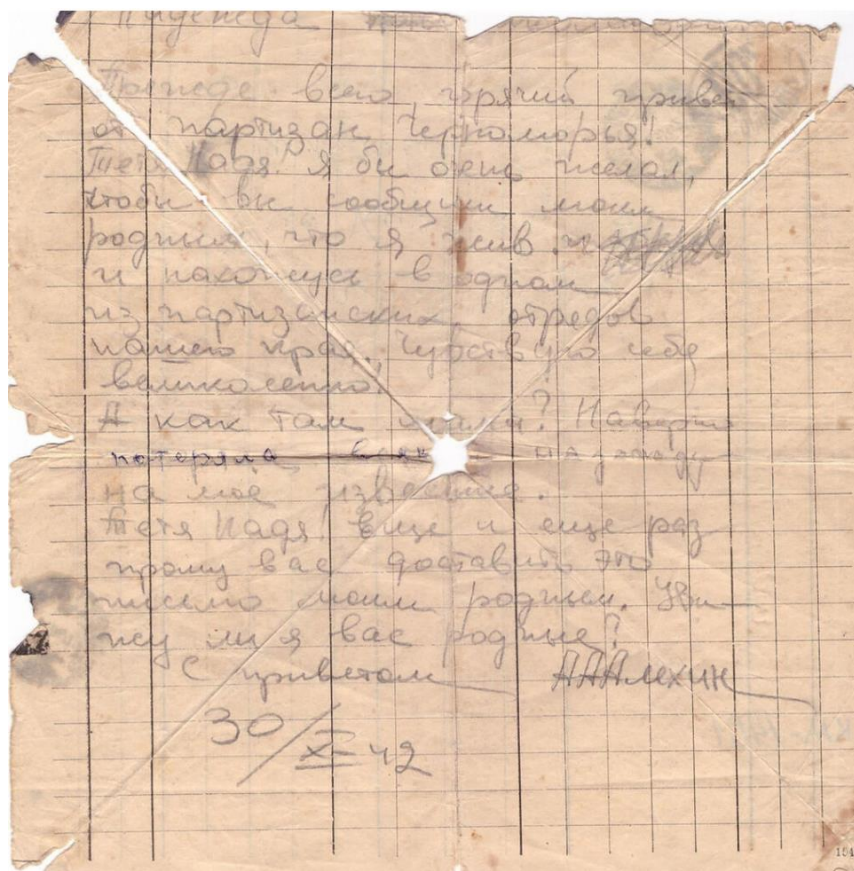 Надежда
Прежде всего, горячий привет
от партизан Черноморья!
Тетя Надя! Я бы очень желал,
чтобы вы сообщили моим
родным, что я жив и
и нахожусь в одном
из партизанских отредов
нашего края, чувствую себя
великолепно.
А как там мама? Наверно
потеряла надежду
на моё известие.
Тетя Надя! Еще и еще раз
прошу вас доставить это
письмо моим родным. Уви-
жу ли я вас родные?
С приветом ААлехин
30/X-42